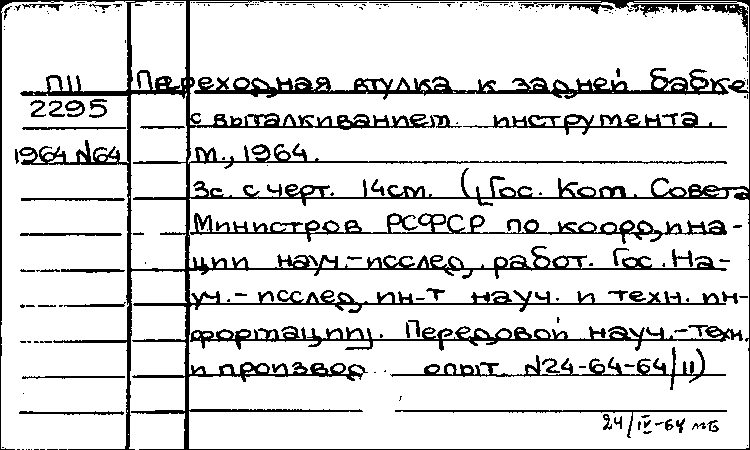 П11 Переходная втулка к задней бабке
2295 с выталкиванием инструмента.
1964 №64 М., 1964.
3с. с черт. 14см. (Гос. Ком. Совета
Министров РСФСР по координа-
ции науч.-исслед. работ. Гос. На-
уч.-исслед. ин-т науч. и техн. ин-
формации). Передовой науч.-техн.
и производ опыт №24-64-64/11)
24/IV-64 мб